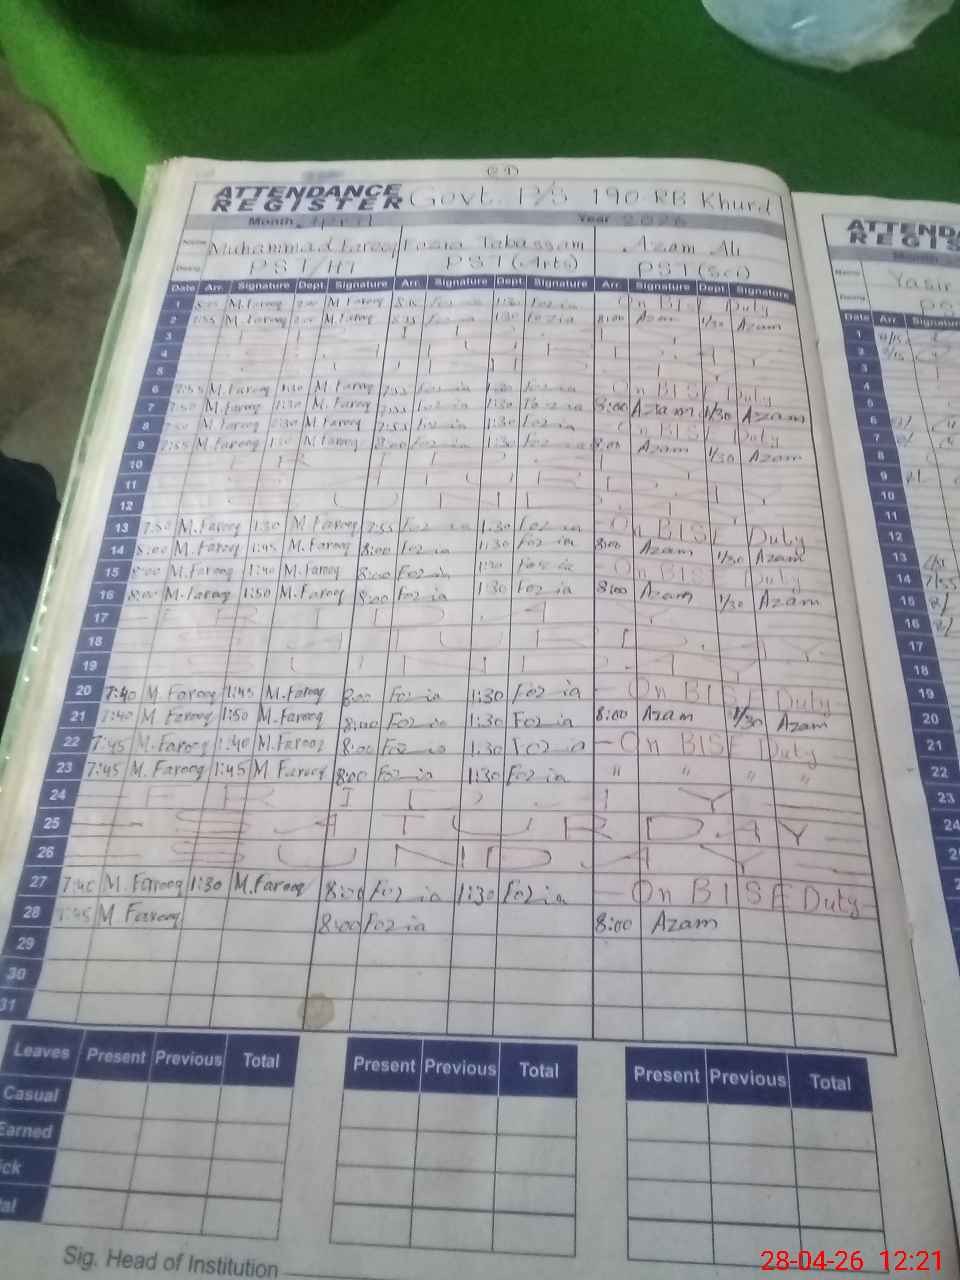 (21)
ATTENDANCE REGISTER Govt. P/S 190 RB Khurd
Month April Year 2026
Name Muhammad Farooq Fozia Tabassam Azam Ali
Desig PST/HT PST(Arts) PST(Sci)
Date Arr. Signature Dept. Signature Arr. Signature Dept Signature Arr. Signature Dept Signature
1 M.Farooq M.Farooq 8:15 Fozia 1:30 Fozia On BISE Duty
2 7:55 M.Farooq M.Farooq 8:15 Fozia 1:30 Fozia 8:00 Azam 1/30 Azam
3 F R I D A Y
4 S A T U R D A Y
5 S U N D A Y
6 7:55 M.Farooq 1:30 M.Farooq 7:55 Fozia 1:30 Fozia On BISE Duty
7 7:50 M.Farooq 1:30 M.Farooq 7:55 Fozia 1:30 Fozia 8:00 Azam 1/30 Azam
8 7:50 M.Farooq M.Farooq 7:55 Fozia 1:30 Fozia On BISE Duty
9 7:55 M.Farooq 1:30 M.Farooq 8:00 Fozia 1:30 Fozia 8:00 Azam 1/30 Azam
10 F R I D A Y
11 S A T U R D A Y
12 S U N D A Y
13 7:50 M.Farooq 1:30 M.Farooq 7:55 Fozia 1:30 Fozia - On BISE Duty
14 8:00 M.Farooq 1:45 M.Farooq 8:00 Fozia 1:30 Fozia 8:00 Azam 1/30 Azam
15 8:00 M.Farooq 1:40 M.Farooq 8:00 Fozia 1:30 Fozia - On BISE Duty
16 8:00 M.Farooq 1:50 M.Farooq 8:00 Fozia 1:30 Fozia 8:00 Azam 1/30 Azam
17 F R I D A Y
18 S A T U R D A Y
19 S U N D A Y
20 7:40 M.Farooq 1:45 M.Farooq 8:00 Fozia 1:30 Fozia - On BISE Duty
21 7:40 M.Farooq 1:50 M.Farooq 8:00 Fozia 1:30 Fozia 8:00 Azam 1/30 Azam
22 7:45 M.Farooq 1:40 M.Farooq 8:00 Fozia 1:30 Fozia - On BISE Duty
23 7:45 M.Farooq 1:45 M Farooq 8:00 Fozia 1:30 Fozia " " " "
24 F R I D A Y
25 S A T U R D A Y
26 S U N D A Y
27 7:40 M.Farooq 1:30 M.Farooq 8:00 Fozia 1:30 Fozia - On BISE Duty
28 7:45 M.Farooq 8:00 Fozia 8:00 Azam
29
30
31
Leaves Present Previous Total Present Previous Total Present Previous Total
Casual
Earned
ick
tal
Sig. Head of Institution
ATTENDA
REGIS
Name Yasir
Desig PS
Date Arr. Signature
1
2
3
4
5
6
7
8
9
10
11
12
13
14 7/55
15
16
17
18
19
20
21
22
23
24
28-04-26 12:21